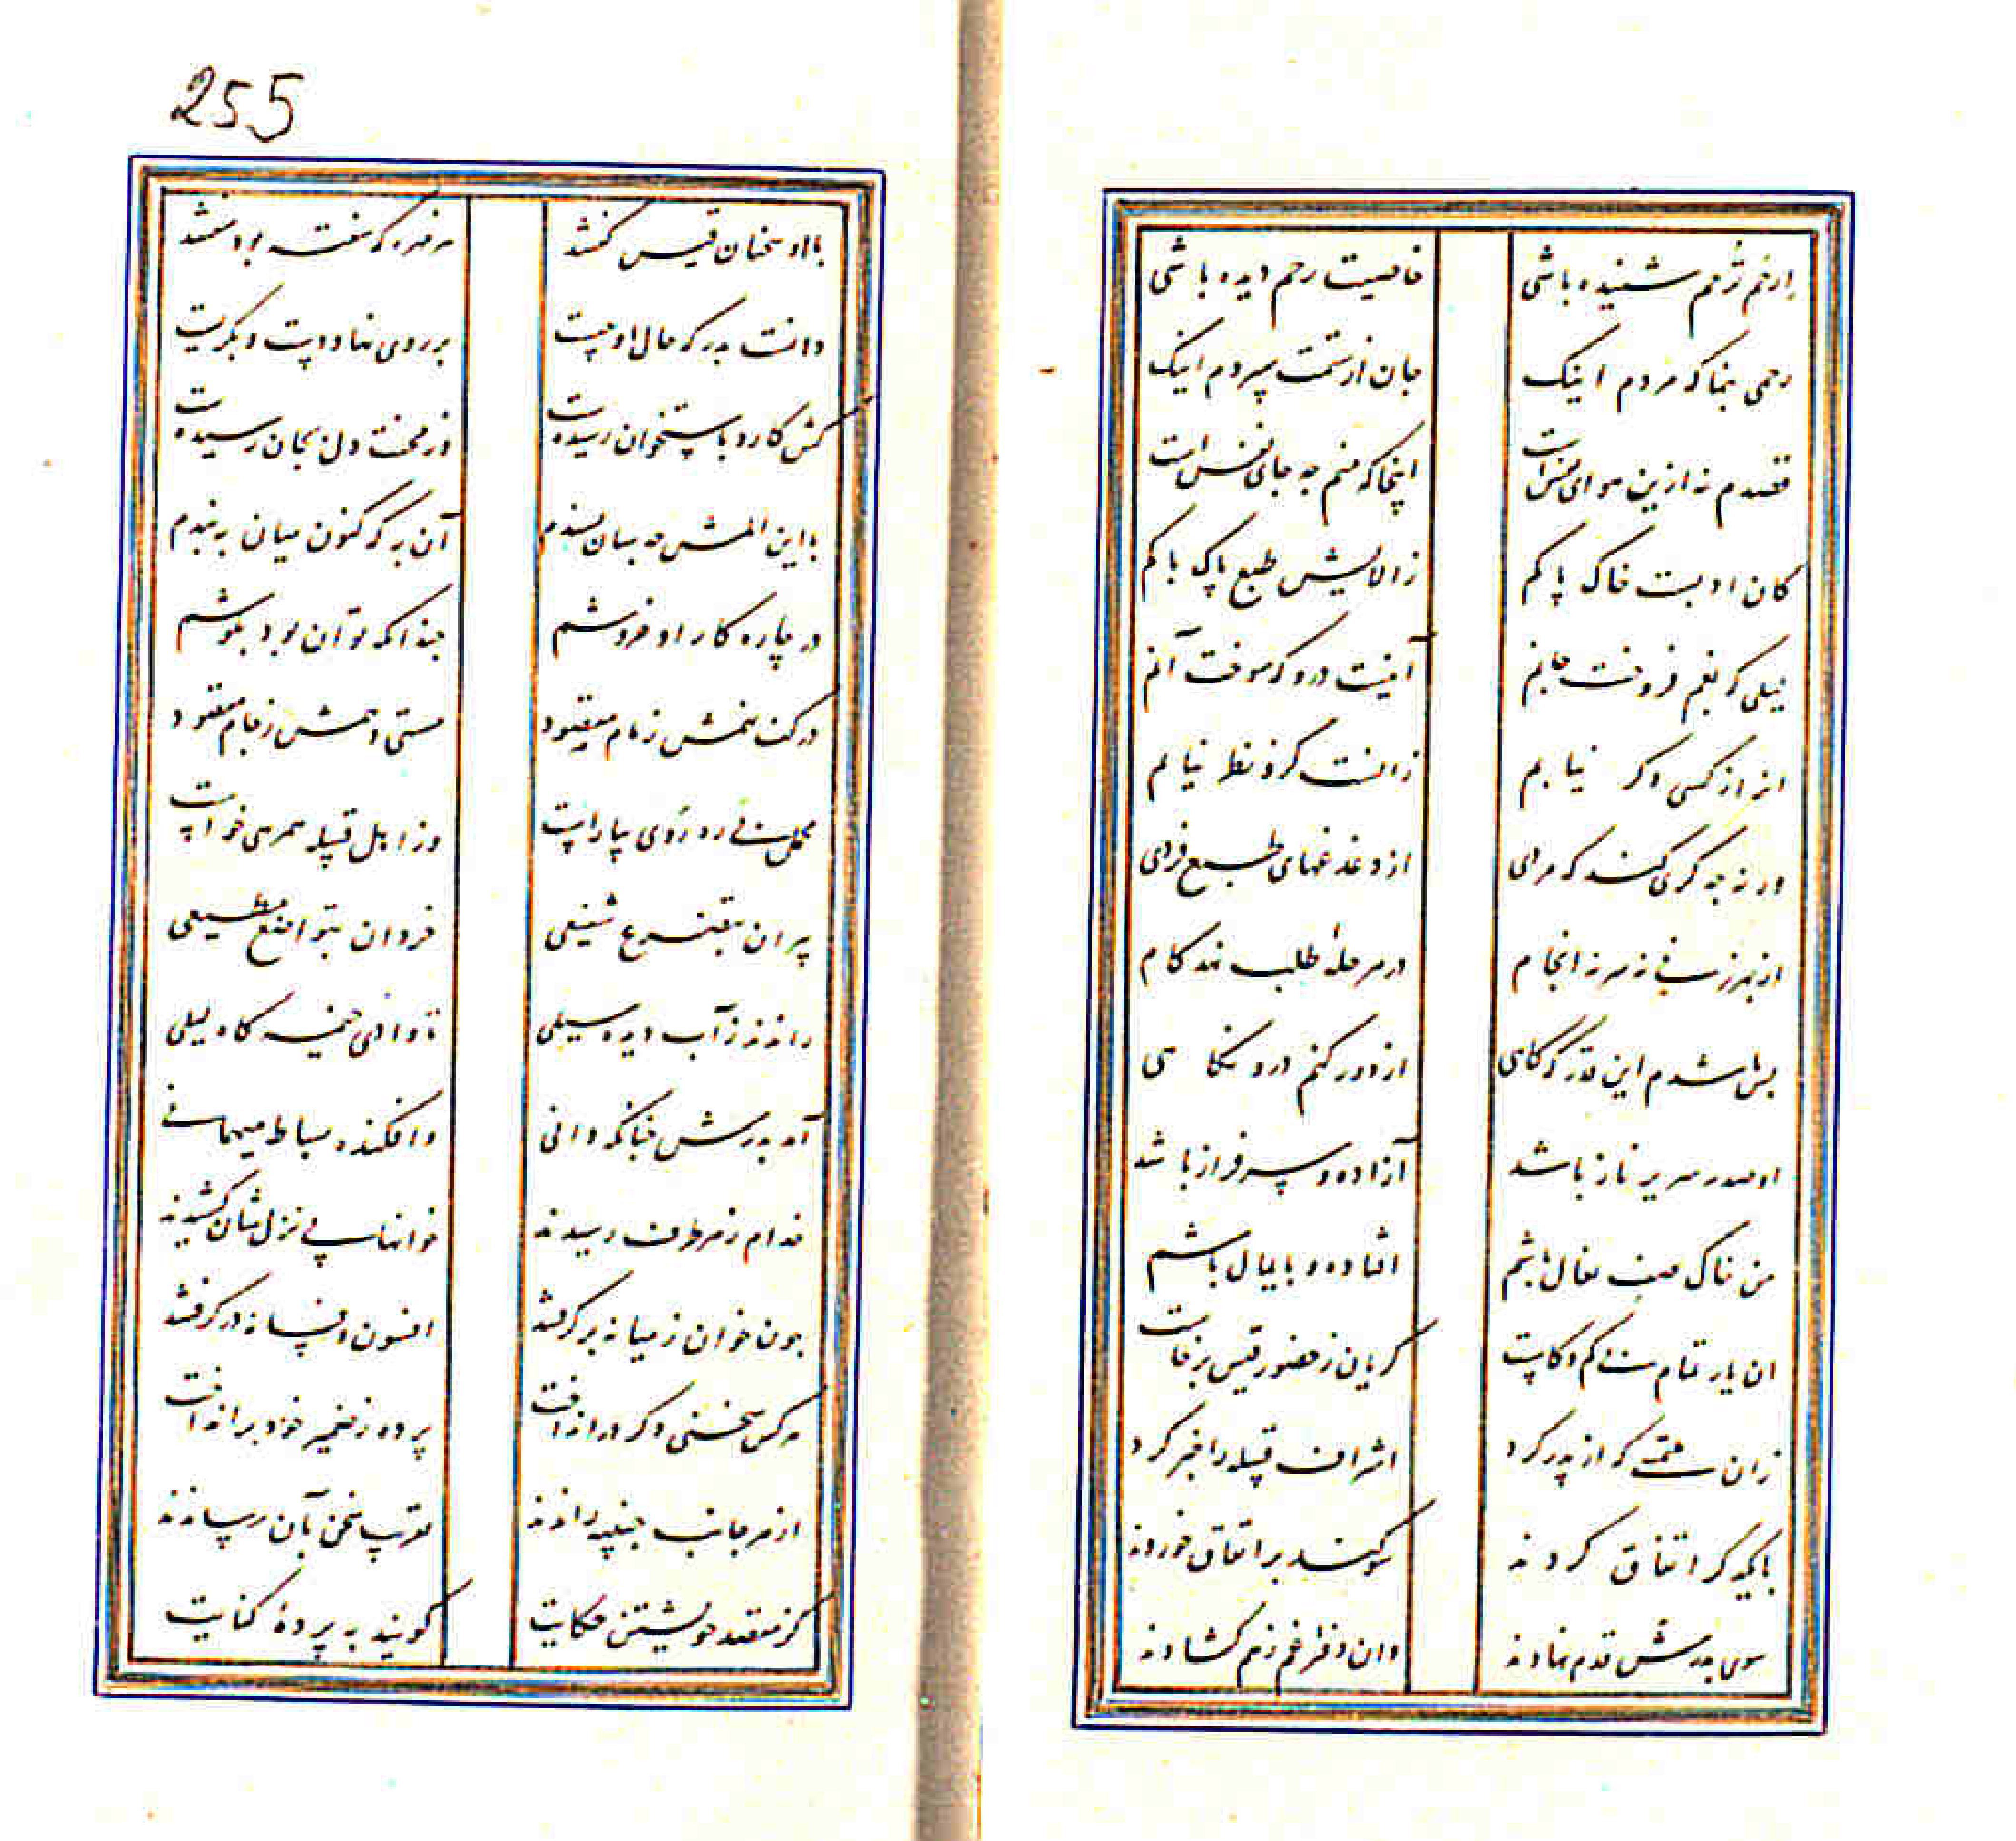 از خم ترحم شنیده باشی خاصیت رحم دیده باشی
رحمی بنما که مردم اینک جان از ستمت سپردم اینک
قصدم نه ازین هوای نفس است اینجا که منم چه جای نفس است
کان اوست خاک پاکم ز الایش طبع پاک باکم
لیلی که بغم فروخت جانم آنیست درو که سوخت آنم
ان از کسی دکر نیابم زانست کزو نظر نیابم
ورنه چه کری کند که مرای از دغدغهای طبع فردی
از هرزنی نه سرنه انجام در مرحلهٔ طلب نهد کام
بس باشدم این قدر که کاهی از دور کنم درو نکاهی
او صدر سریر ناز باشد آزاده و سرفراز باشد
من خاک صف نعال باشم افتاده و پایمال باشم
ان یار تمام بی کم و کاست کریان ز حضور قیس برخاست
زان که از پدر کرد اشراف قبیله را خبر کرد
با یکدکر اتفاق کردند سوکند بر اتفاق خوردند
سوی پدرش قدم نهادند وان دفتر غم ز هم کشادند
255
با او سخنان قیس کفتند هر مهره که سفته بود سفتند
دانست پدر که حال او چیست بر روی نهاد دست و بکریست
کش کارد باستخوان رسیدست وز محنت دل بجان رسیدست
با این المش چه سان پسندم آن به که کنون میان به بندم
در چاره کار او خروشم چندانکه توان بود بکوشم
در کف نهمش زمام مقصود مستی دهمش ز جام مقصود
محمل پی ره روی بیاراست وز اهل قبیله همرهی خواست
پیران بتضرع شفیعی خردان بتواضع مطیعی
راندند ز آب دیده سیلی تا وادی خیمه کاه لیلی
آمد پدرش چنانکه دانی وافکنده بساط میهمانی
خدام ز هر طرف رسیدند خوانها پی نزل شان کشیدند
چون خوان ز میانه برکرفتند افسون و فسانه درکرفتند
هر کس سخنی دکر درانداخت پرده ز ضمیر خود برانداخت
از هر جانب جنیبه راندند تقریب سخن بآن رساندند
کز مقصد خویشتن حکایت کویند به پردهٔ کنایت